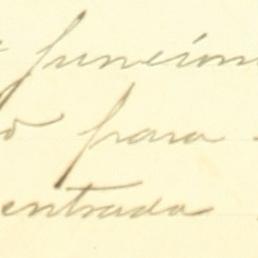 funcion
para
entrada